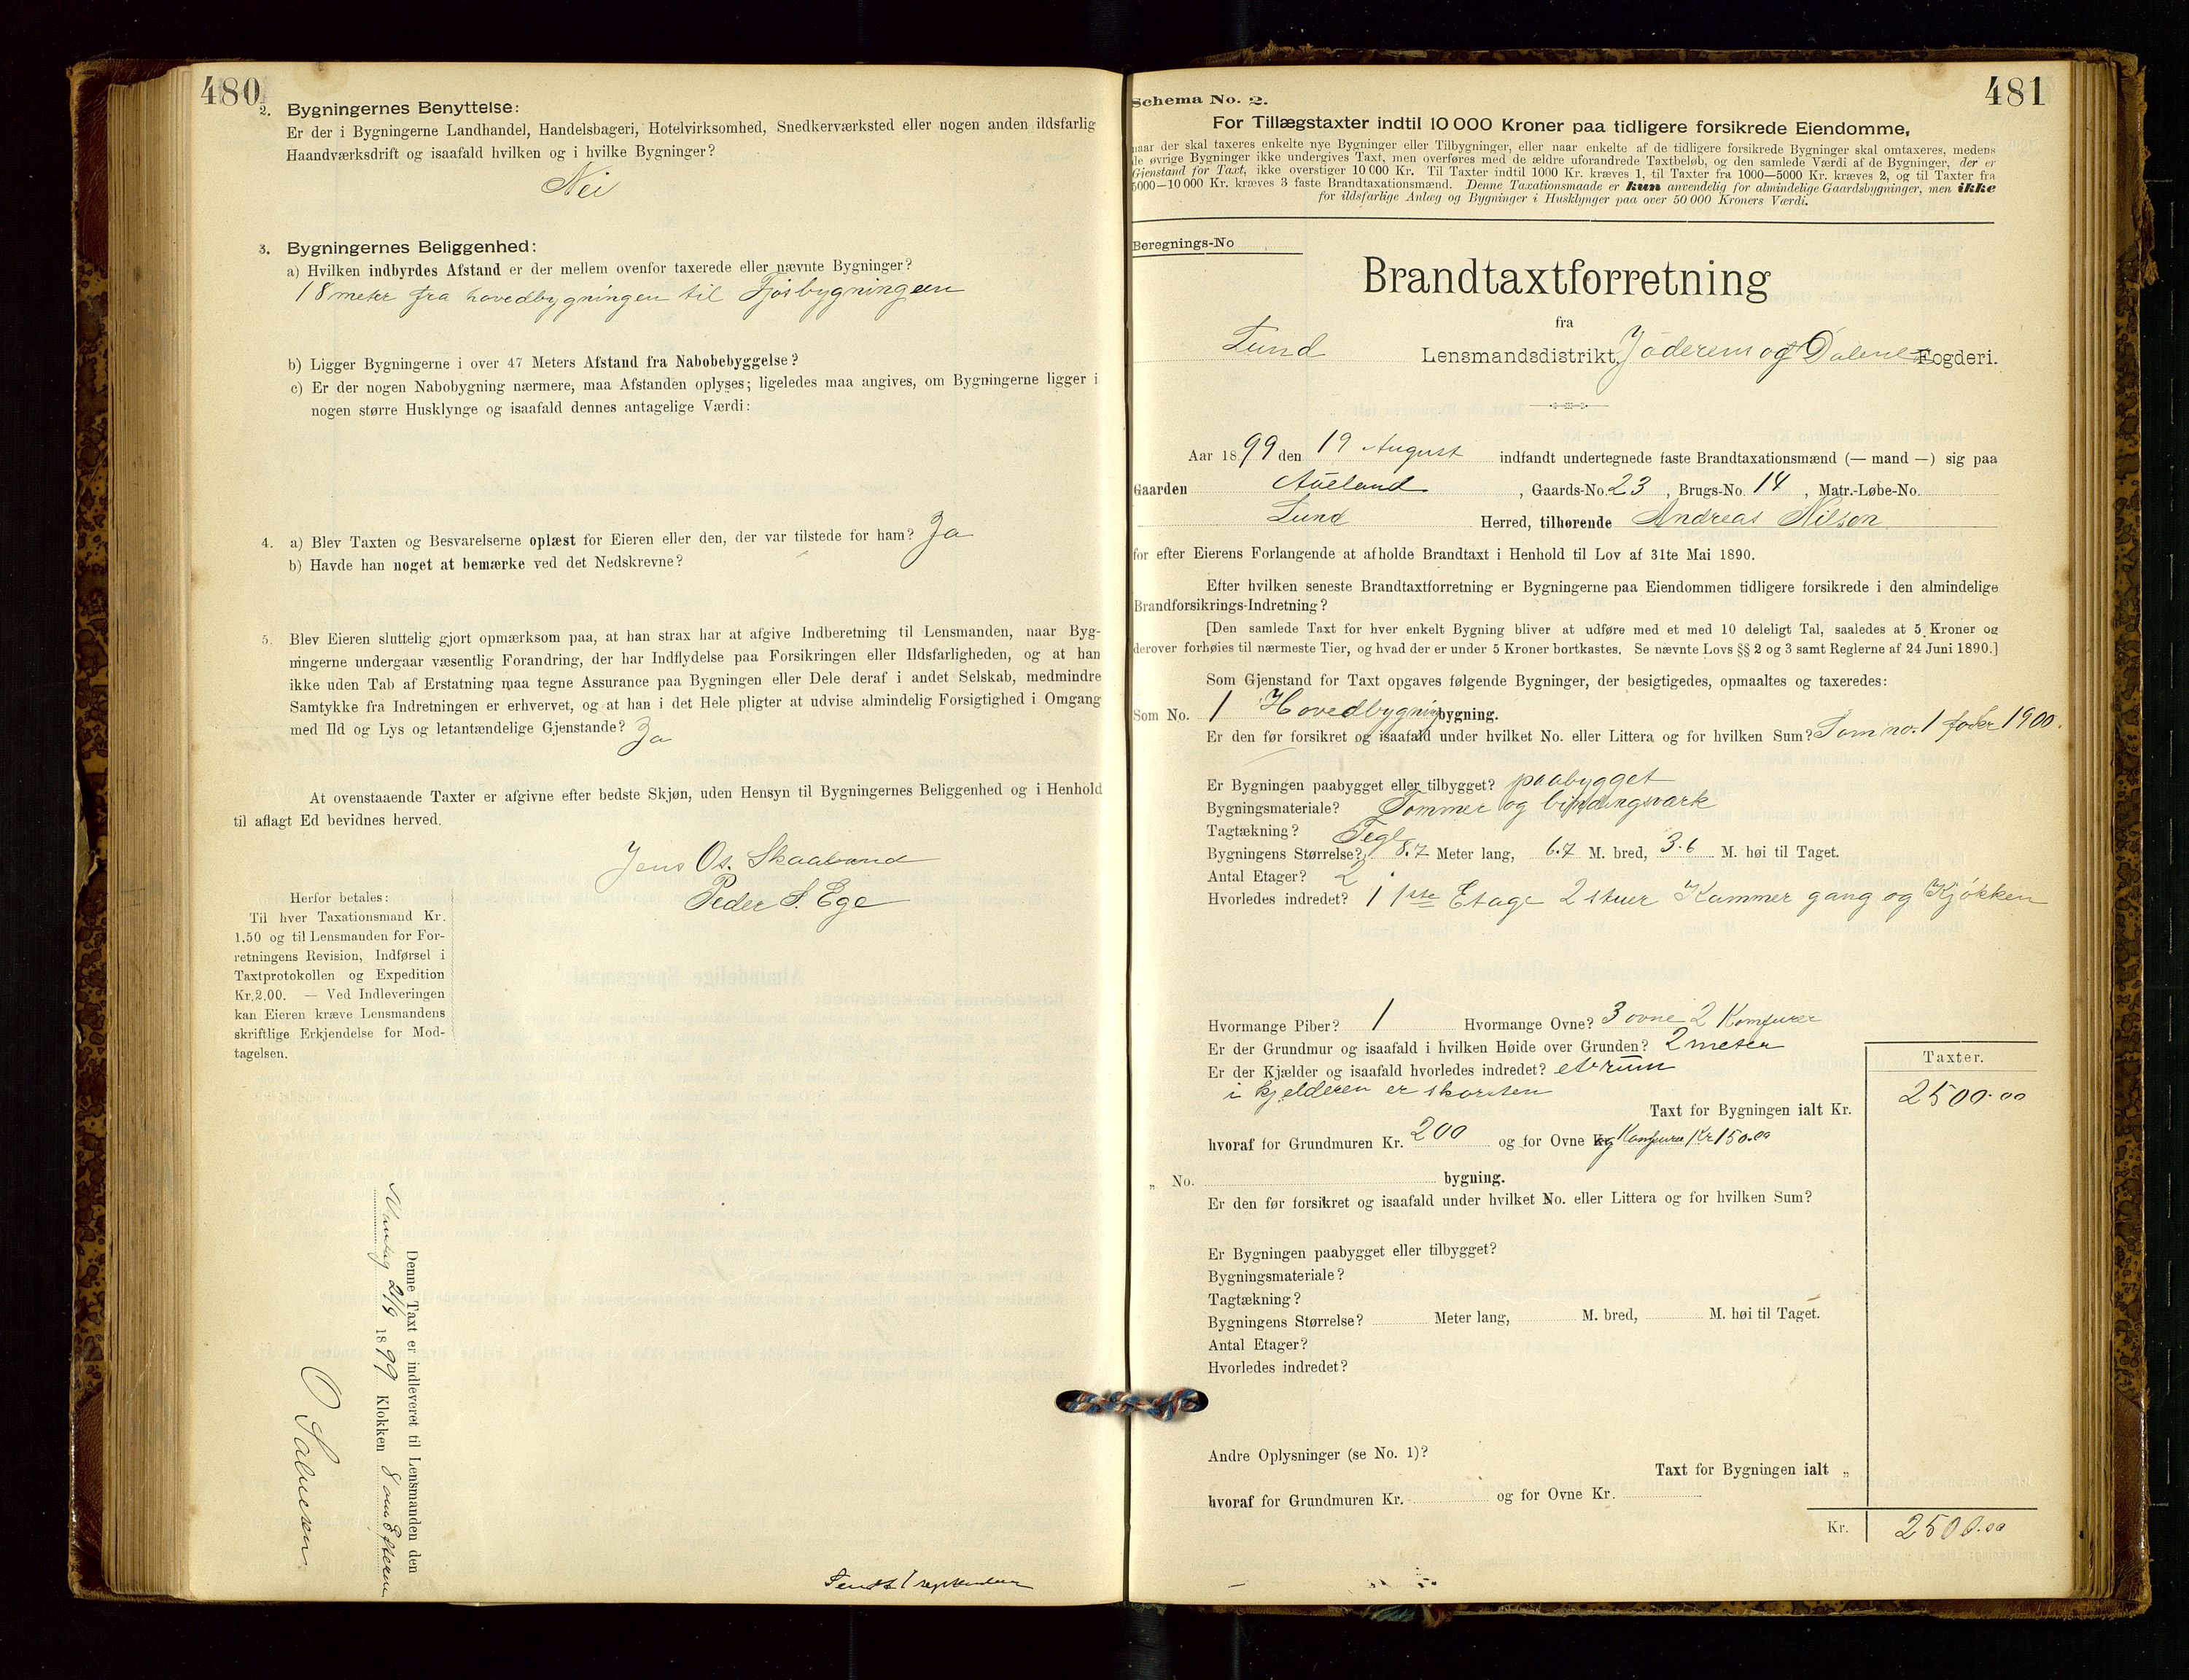 480
2. Bygningernes Benyttelse:
Er der i Bygningerne Landhandel, Handelsbageri, Hotelvirksomhed, Snedkerværksted eller nogen anden ildsfarlig
Haandværksdrift og isaafald hvilken og i hvilke Bygninger?
Nei
3. Bygningernes Beliggenhed:
a) Hvilken indbyrdes Afstand er der mellem ovenfor taxerede eller nævnte Bygninger?
18 meter fra hovedbygningen til Fjøsbygningeen
b) Ligger Bygningerne i over 47 Meters Afstand fra Nabobebyggelse?
c) Er der nogen Nabobygning nærmere, maa Afstanden oplyses; ligeledes maa angives, om Bygningerne ligger i
nogen større Husklynge og isaafald dennes antagelige Værdi:
4. a) Blev Taxten og Besvarelserne oplæst for Eieren eller den, der var tilstede for ham? Ja
b) Havde han noget at bemærke ved det Nedskrevne?
5. Blev Eieren sluttelig gjort opmærksom paa, at han strax har at afgive Indberetning til Lensmanden, naar Byg-
ningerne undergaar væsentlig Forandring, der har Indflydelse paa Forsikringen eller Ildsfarligheden, og at han
ikke uden Tab af Erstatning maa tegne Assurance paa Bygningen eller Dele deraf i andet Selskab, medmindre
Samtykke fra Indretningen er erhvervet, og at han i det Hele pligter at udvise almindelig Forsigtighed i Omgang
med Ild og Lys og letantændelige Gjenstande? Ja
At ovenstaaende Taxter er afgivne efter bedste Skjøn, uden Hensyn til Bygningernes Beliggenhed og i Henhold
til aflagt Ed bevidnes herved.
Jens Os. Skaaland
Peder S. Ege
Herfor betales:
Til hver Taxationsmand Kr.
1.50 og til Lensmanden for For-
retningens Revision, Indførsel i
Taxtprotokollen og Expedition
Kr. 2.00. — Ved Indleveringen
kan Eieren kræve Lensmandens
skriftlige Erkjendelse for Mod-
tagelsen.
Denne Taxt er indleveret til Lensmanden den
Mandag 21/8 1899 Klokken 8 om Efterm
Sendt 1 september
481
Schema No. 2.
For Tillægstaxter indtil 10 000 Kroner paa tidligere forsikrede Eiendomme,
naar der skal taxeres enkelte nye Bygninger eller Tilbygninger, eller naar enkelte af de tidligere forsikrede Bygninger skal omtaxeres, medens
de øvrige Bygninger ikke undergives Taxt, men overføres med de ældre uforandrede Taxtbeløb, og den samlede Værdi af de Bygninger, der er
Gjenstand for Taxt, ikke overstiger 10 000 Kr. Til Taxter indtil 1000 Kr. kræves 1, til Taxter fra 1000—5000 Kr. kræves 2, og til Taxter fra
5000—10 000 Kr. kræves 3 faste Brandtaxationsmænd. Denne Taxationsmaade er kun anvendelig for almindelige Gaardsbygninger, men ikke
for ildsfarlige Anlæg og Bygninger i Husklynger paa over 50 000 Kroners Værdi.
Beregnings-No
Brandtaxtforretning
fra
Lund Lensmandsdistrikt, Jæderens og Dalene Fogderi.
Aar 1899 den 19 August indfandt undertegnede faste Brandtaxationsmænd (— mand —) sig paa
Gaarden Aueland, Gaards-No. 23, Brugs-No. 14, Matr.-Løbe-No.
Lund Herred, tilhørende Andreas Nilsen
for efter Eierens Forlangende at afholde Brandtaxt i Henhold til Lov af 31te Mai 1890.
Efter hvilken seneste Brandtaxtforretning er Bygningerne paa Eiendommen tidligere forsikrede i den almindelige
Brandforsikrings-Indretning?
[Den samlede Taxt for hver enkelt Bygning bliver at udføre med et med 10 deleligt Tal, saaledes at 5 Kroner og
derover forhøies til nærmeste Tier, og hvad der er under 5 Kroner bortkastes. Se nævnte Lovs §§ 2 og 3 samt Reglerne af 24 Juni 1890.]
Som Gjenstand for Taxt opgaves følgende Bygninger, der besigtigedes, opmaaltes og taxeredes:
Som No. 1 Hovedbygning bygning.
Er den før forsikret og isaafald under hvilket No. eller Littera og for hvilken Sum? Som no. 1 for kr 1900.
Er Bygningen paabygget eller tilbygget? paabygget
Bygningsmateriale? Tømmer og bindingsværk
Tagtækning? Tegl
Bygningens Størrelse? 8.7 Meter lang, 6.7 M. bred, 3.6 M. høi til Taget.
Antal Etager? 2
Hvorledes indredet? I 1ste Etage 2 stuer Kammer gang og Kjøkken
Hvormange Piber? 1 Hvormange Ovne? 3 ovne 2 Komfurer
Er der Grundmur og isaafald i hvilken Høide over Grunden? 2 meter
Er der Kjælder og isaafald hvorledes indredet? et rum
i kjelderen er skorsten
Taxter.
Taxt for Bygningen ialt Kr. 2500.00
hvoraf for Grundmuren Kr. 200 og for Ovne og Komfurer Kr 150.00
„ No. bygning.
Er den før forsikret og isaafald under hvilket No. eller Littera og for hvilken Sum?
Er Bygningen paabygget eller tilbygget?
Bygningsmateriale?
Tagtækning?
Bygningens Størrelse? Meter lang, M. bred, M. høi til Taget.
Antal Etager?
Hvorledes indredet?
Andre Oplysninger (se No. 1)?
Taxt for Bygningen ialt „
hvoraf for Grundmuren Kr. og for Ovne Kr.
Kr. 2500.00